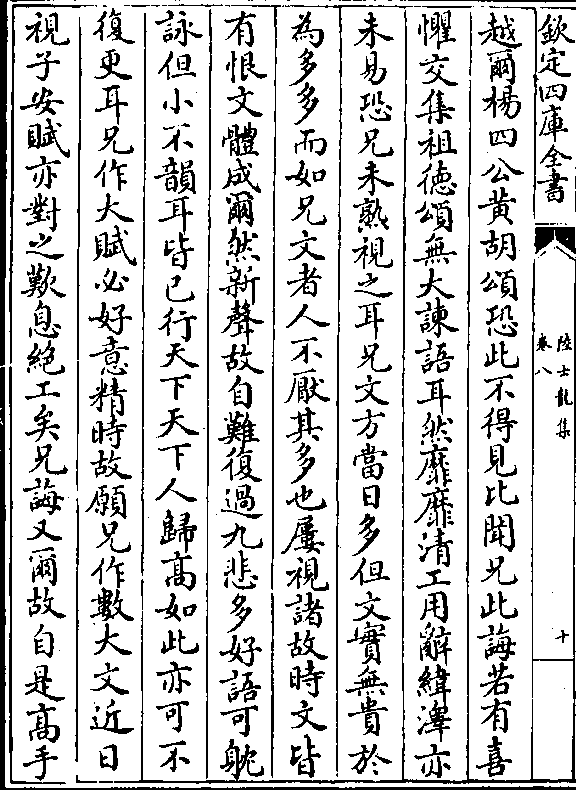 欽定四庫全書
陸士龍集
卷八
十
越爾楊四公黄胡頌恐此不得見比聞兄此誨若有喜
懼交集祖徳頌無大諫語耳然靡靡清工用辭緯澤亦
未易恐兄未熟視之耳兄文方當日多但文實無貴於
為多多而如兄文者人不厭其多也屢視諸故時文皆
有恨文體成爾然新聲故自難復過九悲多好語可耽
詠但小不韻耳皆已行天下天下人歸髙如此亦可不
復更耳兄作大賦必好意精時故願兄作數大文近日
視子安賦亦對之歎息絶工矣兄誨又爾故自是髙手